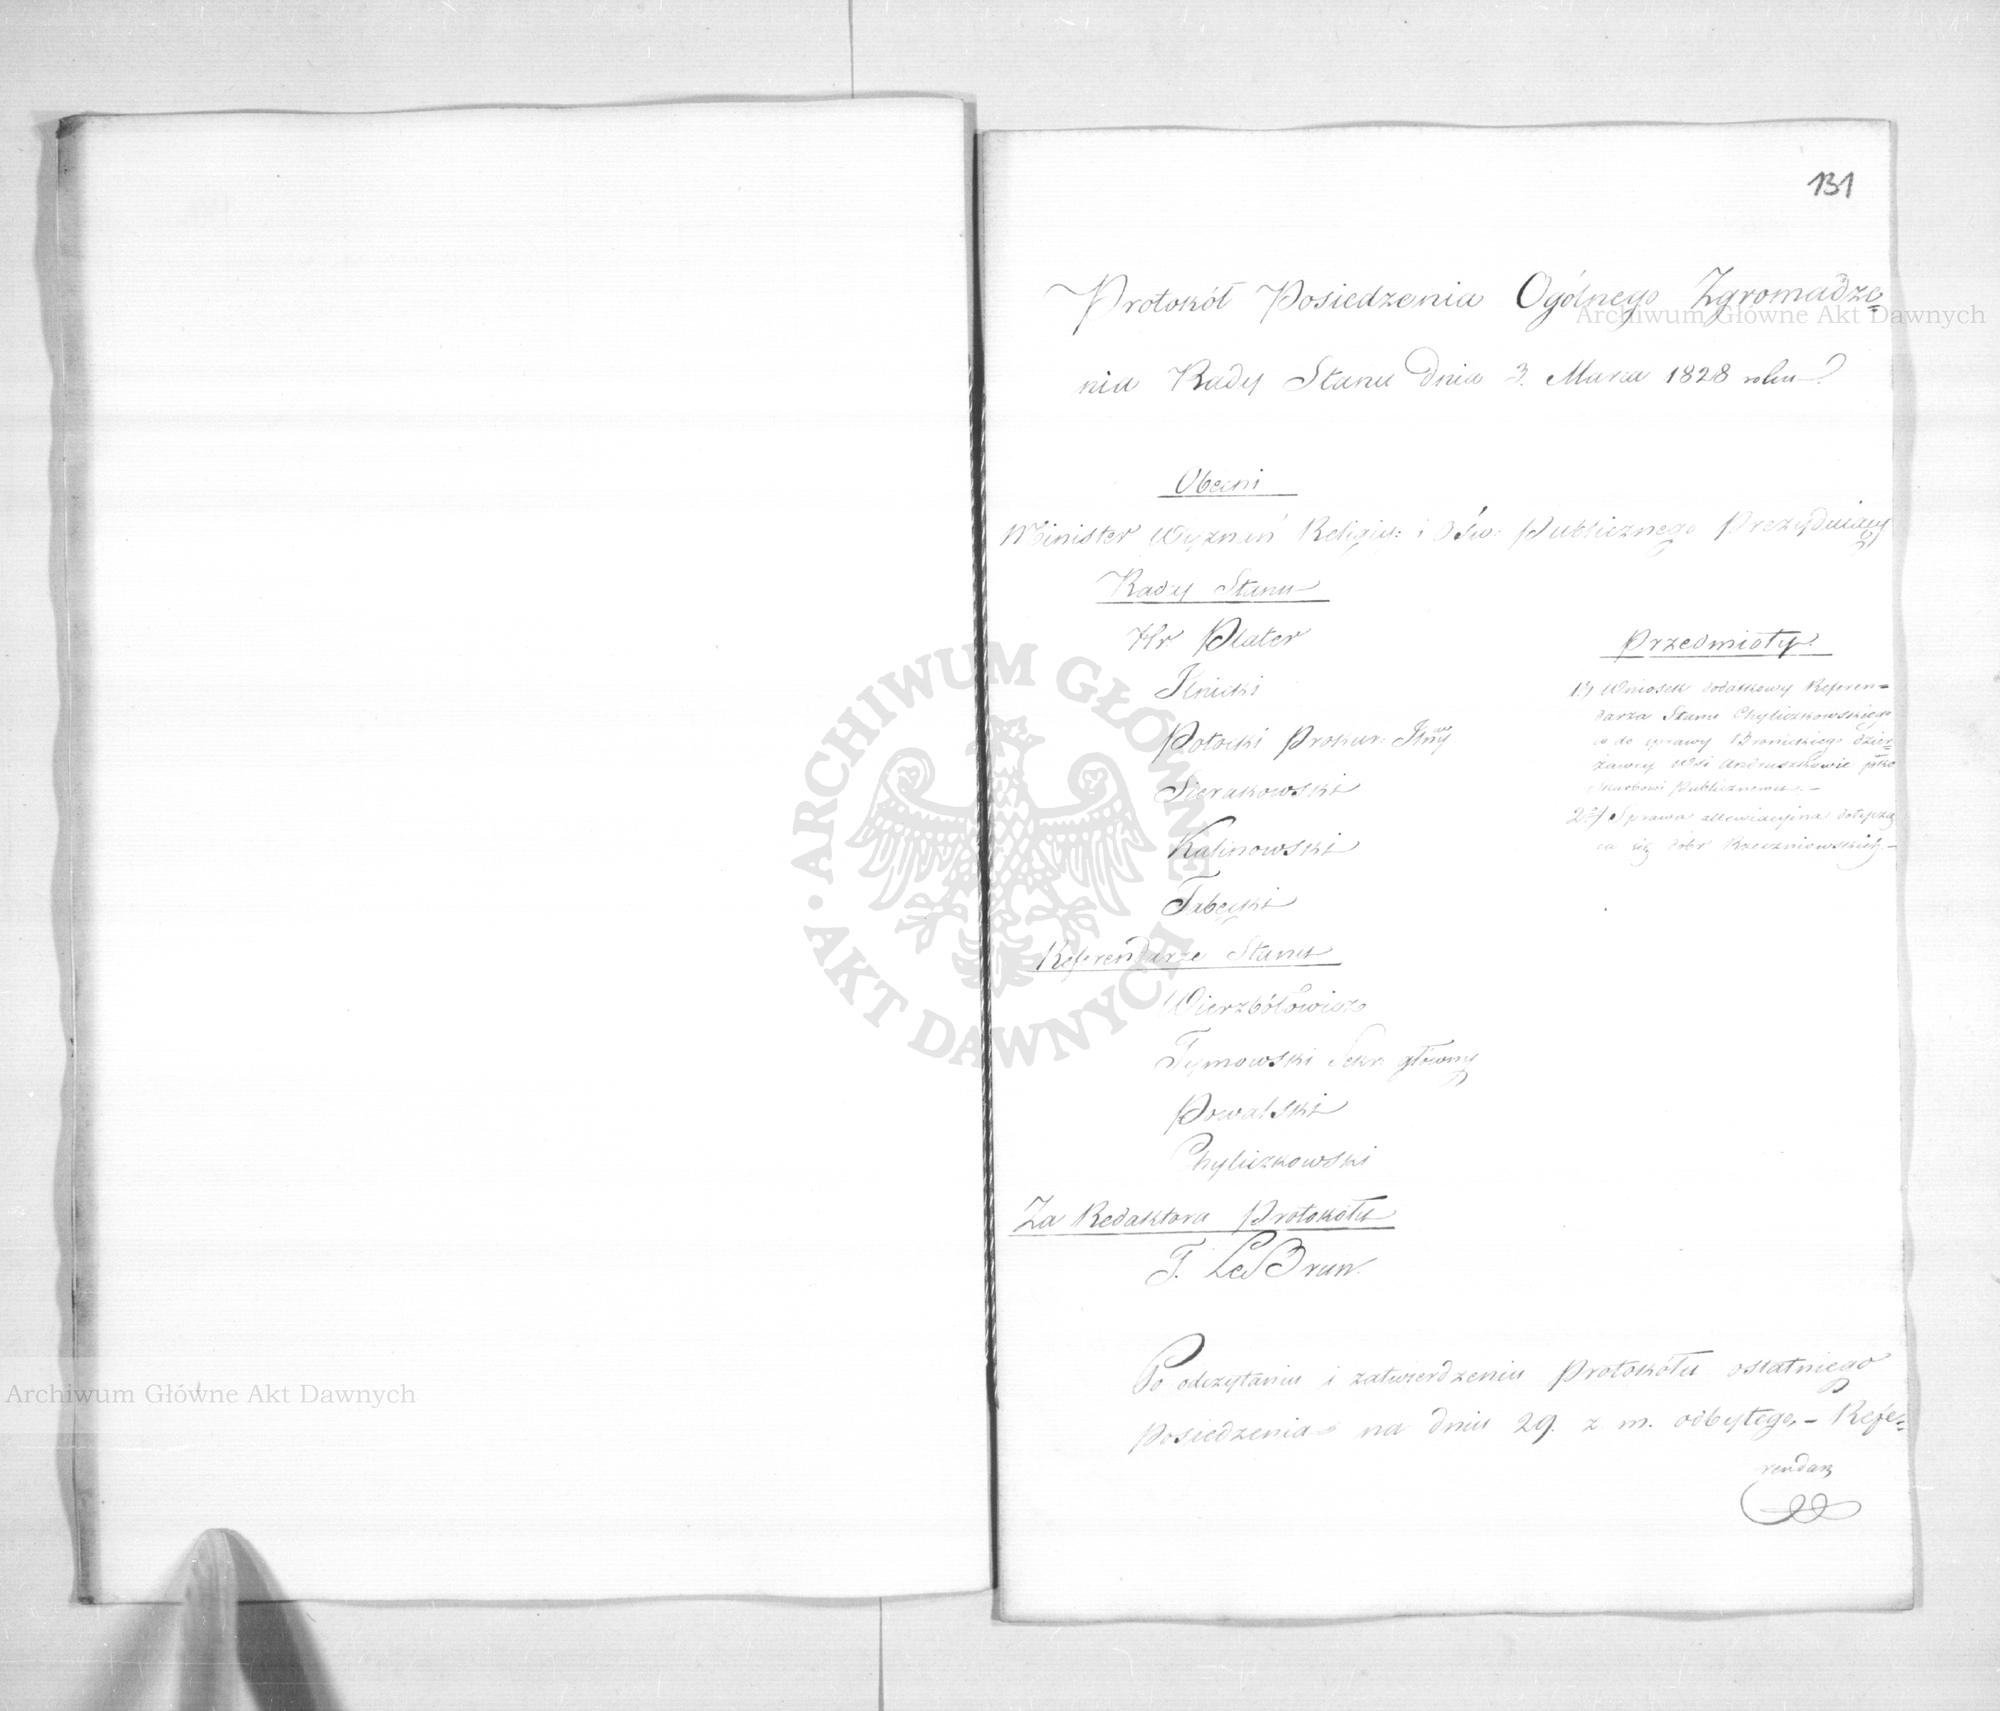 131
Protokół Posiedzenia Ogólnego Zgromadze=
nia Rady Stanu Dnia 3. Marca 1828 roku
Obecni
Minister Wyznań Religiy: i Ośw: Publicznego Prezydujący
Rady Stanu
Hr. Plater
Potocki Prokur:
Sierakowski
Kalinowski
Tabęcki
Referendarze Stanu
Wierzbołowicz
Tymowski Sekr: główny
Powalski
Chyliczkowski
Za Redaktora Protokołu
T. Le Brun.
Przedmioty.
1) Wniosek dodatkowy Referen=
darza Stanu Chyliczkowskiego
co do sprawy Bronickiego Dzier=
żawcy Wsi Andruszkowic pko
Skarbowi Publicznemu. –
2) Sprawa allewiacyina dotycza
ca się dóbr Rzeczniowskich. –
Po odczytaniu i zatwierdzeniu Protokołu ostatniego
Posiedzenia na dniu 29. z. m. odbytego, – Refe=
rendarz
Archiwum Główne Akt Dawnych
Archiwum Główne Akt Dawnych
ARCHIWUM GŁÓWNE
· AKT DAWNYCH ·